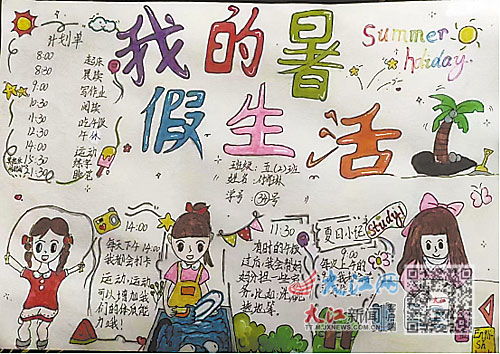 我的暑
假生活
Summer
holiday
计划单
8:00 起床
8:30 晨读
9:00 写作业
10:30 阅读
11:30 吃午饭
12:30 午休
14:00 运动
15:30 练字
21:30 晚安
班级:五(2)班
姓名:
学号:39号
14:00
每天下午14:00
我都会打卡
运动,运动
可以增加我
们的体质能
力哦!
11:30
有时的午饭
过后,我会帮妈
妈分担一些家
务,比如:洗碗,
拖地等。
夏日小记
study!
大江网
大江新闻
TT.MJXNEWS.COM.CN